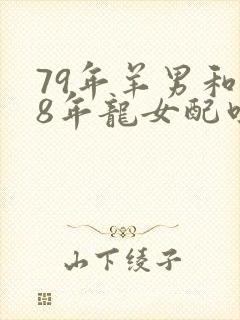 79年羊男和
8年龍女配
山下绫子